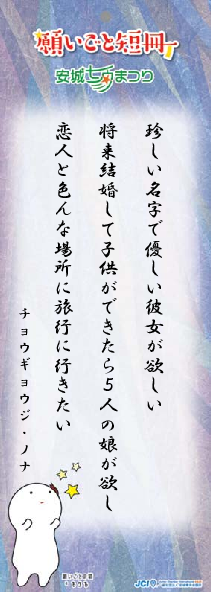 願いごと短冊
安城七夕まつり
珍しい名字で優しい彼女が欲しい
将来結婚して子供ができたら5人の娘が欲し
恋人と色んな場所に旅行に行きたい
チョウギョウジ・ノナ
願いごと短冊
JCI